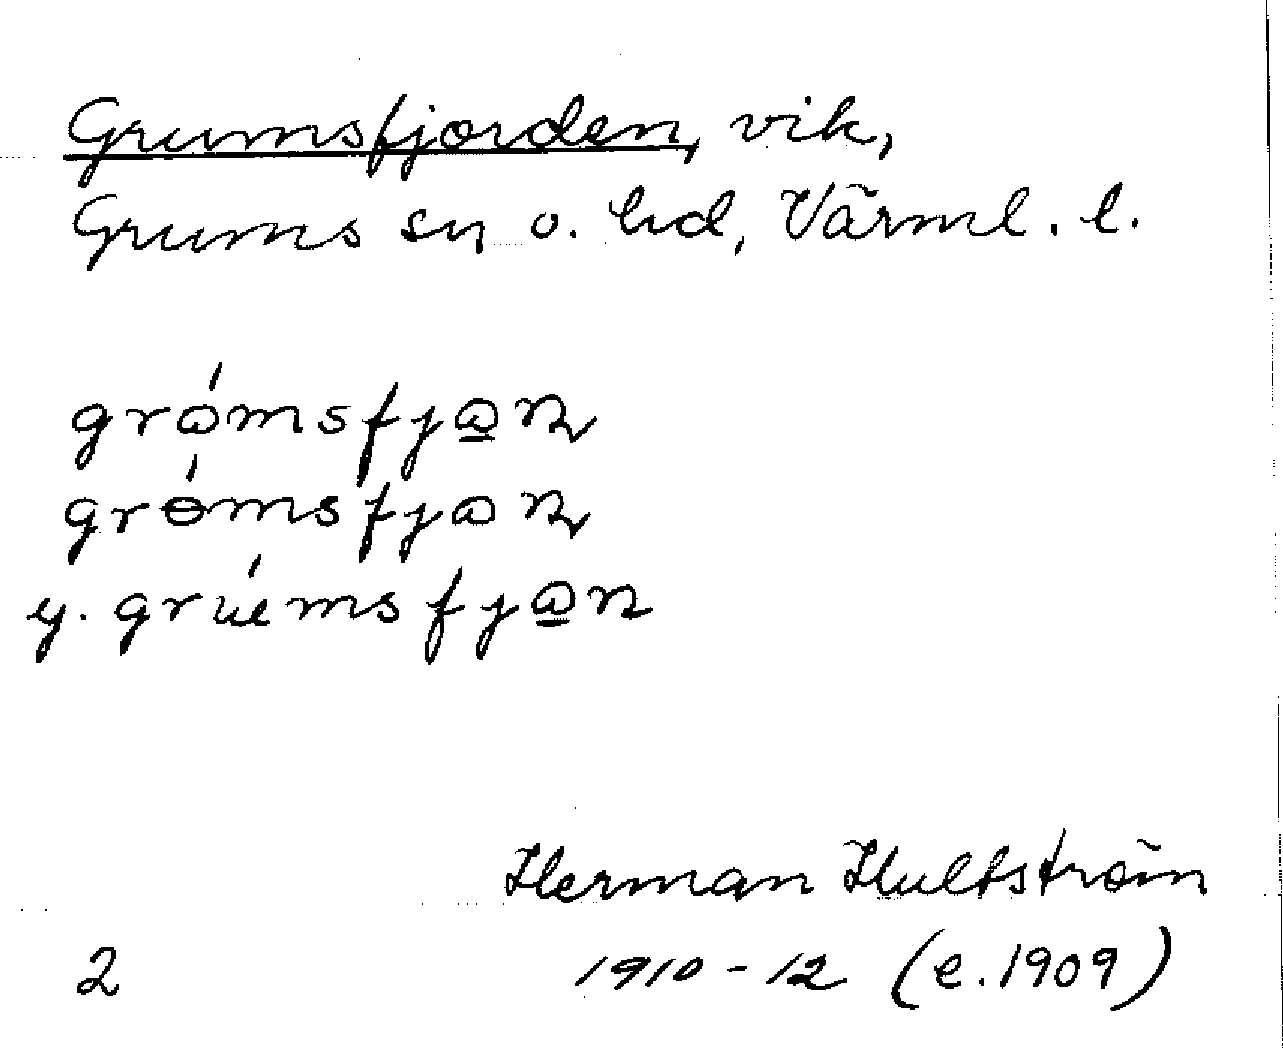 Grumsfjorden, vik,
Grums sn o. hd, Värml. l.
grɷ́msfjɷ̲ɳ
grɵ́msfjɷɳ
y. gruémsfjɷ̲n
Herman Hultström
2 1910-12 (e.1909)